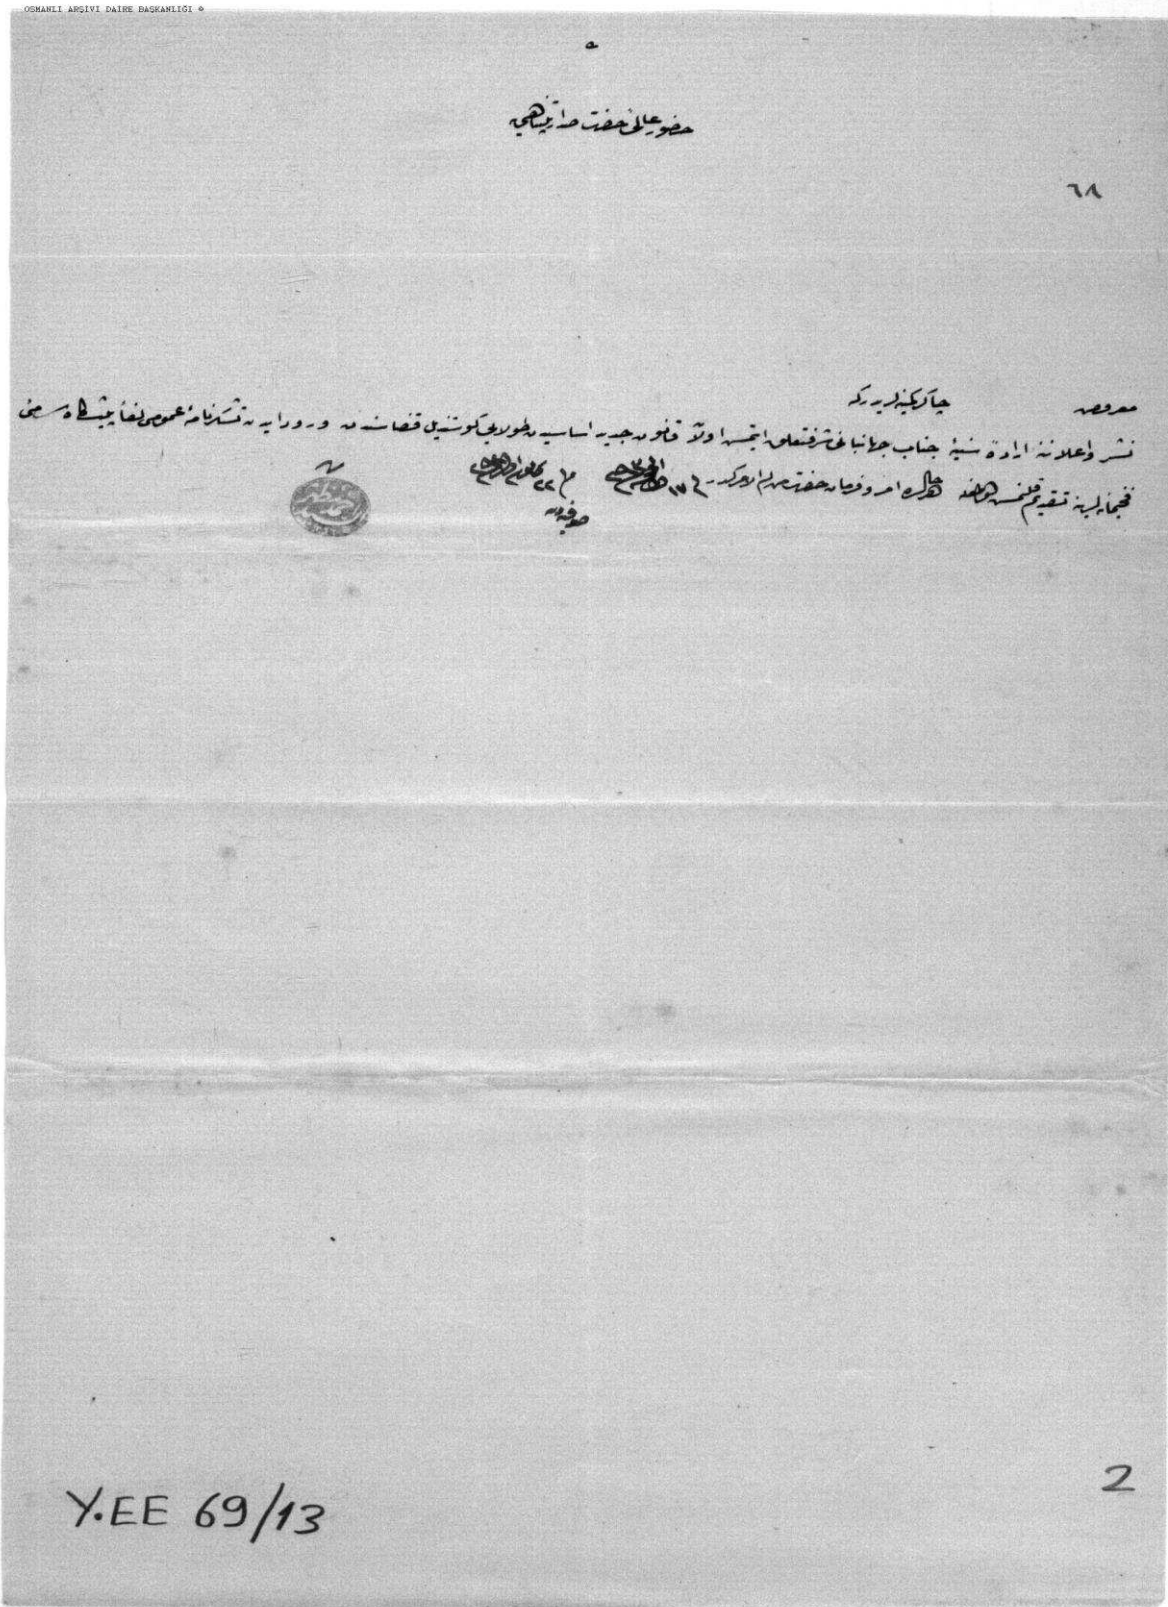 OSMANLI ARŞİVİ DAİRE BAŞKANLIĞI
حضور عالئ حضرت صدارتپناهی
٦٨
معروض چاکر کمینه لریدر که
نشر و اعلاننه ارادهٔ سنیهٔ جناب جهانبانی شرفتعلق ایتمش اولان قانون جدید اساسیدن طولایی کوستندیل قضاسندن ورود ایدن تشکرنامهٔ عمومی لفاً پیشگاه سامئ
فخیمانه لرینه تقدیم قلنمش اولمغله هر حالده امر و فرمان حضرت من له الامرکدر فی ١٧ ذی الحجه سنه ٩٣ و فی ٢٢ کانون اول سنه ٩٢
صوفیه دن
Y.EE 69/13
2